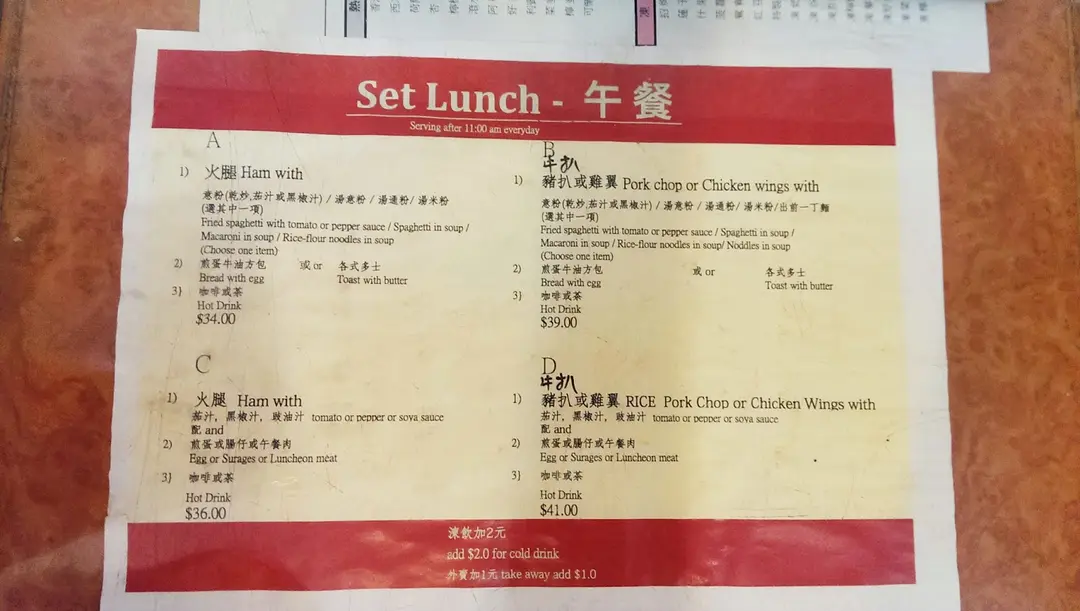 Set Lunch - 午餐
Serving after 11:00 am everyday
A
1) 火腿 Ham with
意粉(乾炒,茄汁或黑椒汁) / 湯意粉 / 湯通粉/ 湯米粉
(選其中一項)
Fried spaghetti with tomato or pepper sauce / Spaghetti in soup /
Macaroni in soup / Rice-flour noodles in soup
(Choose one item)
2) 煎蛋牛油方包 或 or 各式多士
Bread with egg Toast with butter
3} 咖啡或茶
Hot Drink
$34.00
B
牛扒
1) 豬扒或雞翼 Pork chop or Chicken wings with
意粉(乾炒,茄汁或黑椒汁) / 湯意粉 / 湯通粉/ 湯米粉/出前一丁麵
(選其中一項)
Fried spaghetti with tomato or pepper sauce / Spaghetti in soup /
Macaroni in soup / Rice-flour noodles in soup/ Noddles in soup
(Choose one item)
2) 煎蛋牛油方包 或 or 各式多士
Bread with egg Toast with butter
3} 咖啡或茶
Hot Drink
$39.00
C
1) 火腿 Ham with
茄汁, 黑椒汁, 豉油汁 tomato or pepper or soya sauce
配 and
2) 煎蛋或腸仔或午餐肉
Egg or Surages or Luncheon meat
3} 咖啡或茶
Hot Drink
$36.00
D
牛扒
1) 豬扒或雞翼 RICE Pork Chop or Chicken Wings with
茄汁, 黑椒汁, 豉油汁 tomato or pepper or soya sauce
配 and
2) 煎蛋或腸仔或午餐肉
Egg or Surages or Luncheon meat
3} 咖啡或茶
Hot Drink
$41.00
凍飲加2元
add $2.0 for cold drink
外賣加1元 take away add $1.0